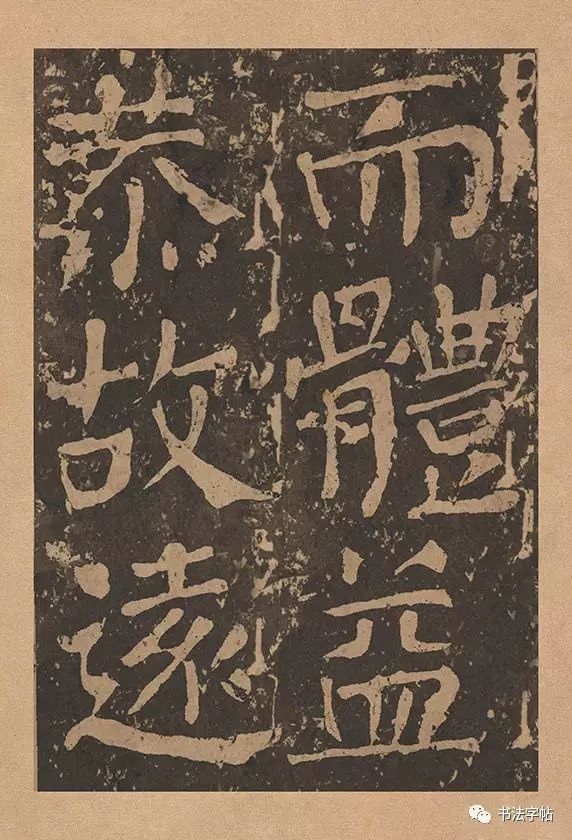 而體益
恭故遠
书法字帖